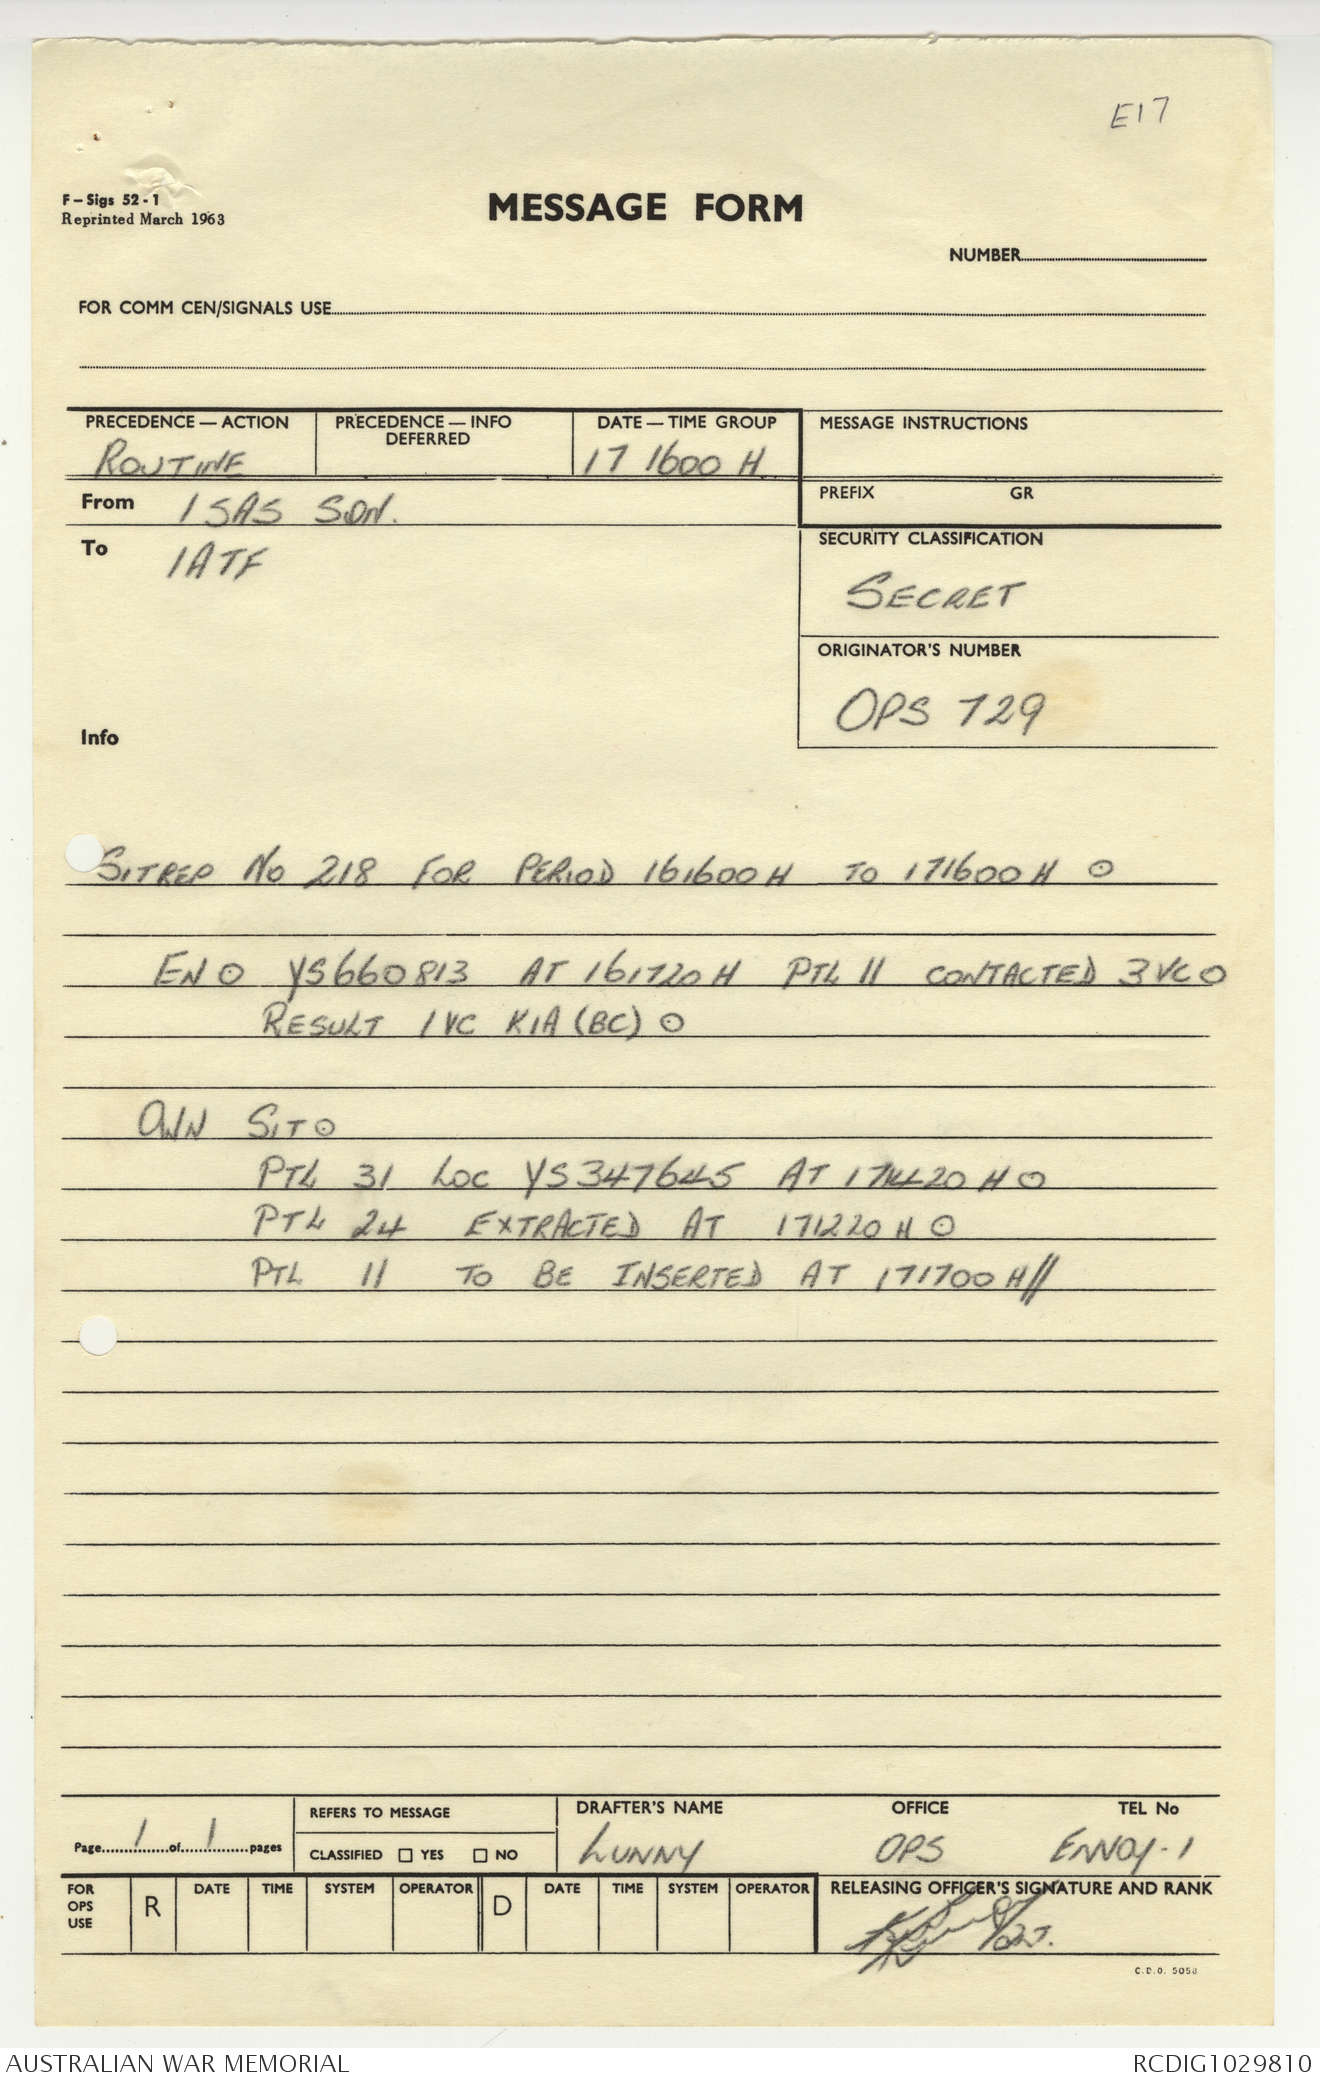 E17
F – Sigs 52 - 1
Reprinted March 1963
MESSAGE FORM
NUMBER
FOR COMM CEN/SIGNALS USE
PRECEDENCE — ACTION
ROUTINE
PRECEDENCE — INFO
DEFERRED
DATE — TIME GROUP
17 1600 H
MESSAGE INSTRUCTIONS
From 1 SAS SQN.
PREFIX GR
To 1ATF
SECURITY CLASSIFICATION
SECRET
ORIGINATOR'S NUMBER
OPS 729
Info
SITREP NO 218 FOR PERIOD 161600H TO 171600H ⊙
EN ⊙ YS660813 AT 161720H PTL 11 CONTACTED 3 VC ⊙
RESULT 1 VC KIA (BC) ⊙
OWN SIT ⊙
PTL 31 LOC YS347645 AT 171420 H ⊙
PTL 24 EXTRACTED AT 171220 H ⊙
PTL 11 TO BE INSERTED AT 171700 H//
Page 1 of 1 pages
REFERS TO MESSAGE
CLASSIFIED YES NO
DRAFTER'S NAME
LUNNY
OFFICE
OPS
TEL No
ENVOY-1
FOR
OPS
USE
R
DATE TIME SYSTEM OPERATOR
D
DATE TIME SYSTEM OPERATOR
RELEASING OFFICER'S SIGNATURE AND RANK
C.D.O. 5058
AUSTRALIAN WAR MEMORIAL
RCDIG1029810